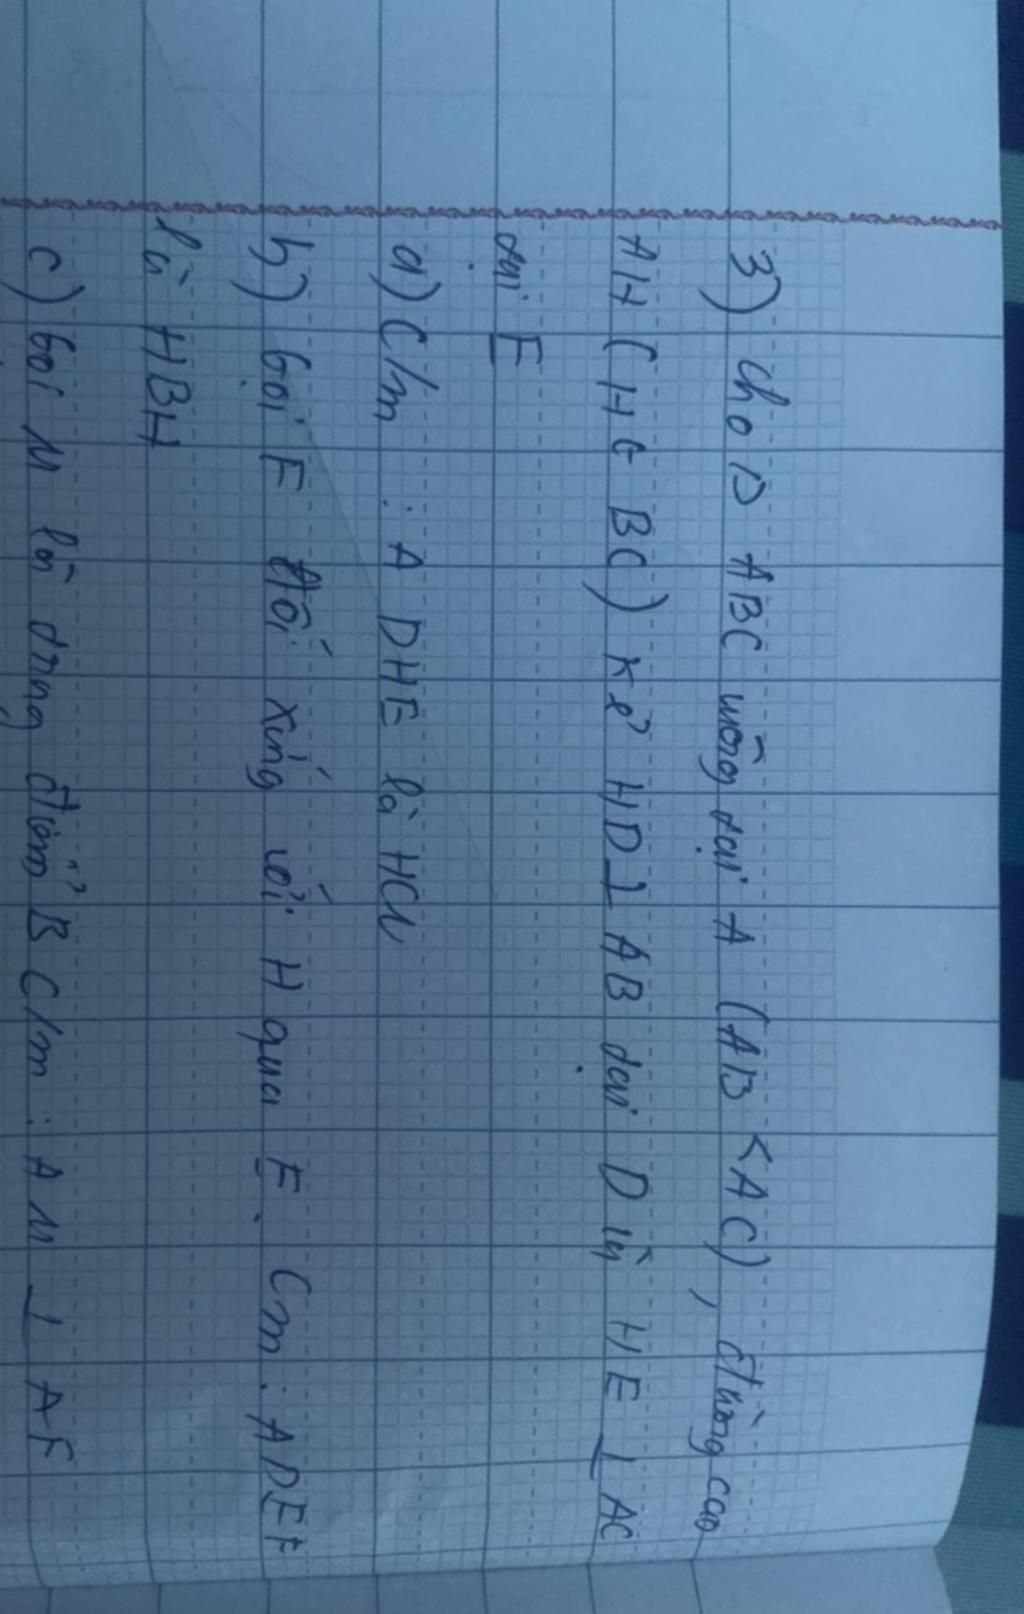 3) Cho Δ ABC vuông tại A (AB < AC), đường cao
AH (H ∈ BC) kẻ HD ⊥ AB tại D và HE ⊥ AC
tại E
a) C/m : A DHE là HCN
b) Gọi F đối xứng với H qua E. Cm : ADEF
là HBH
c) Gọi M là trung điểm BC/m : AM ⊥ AF